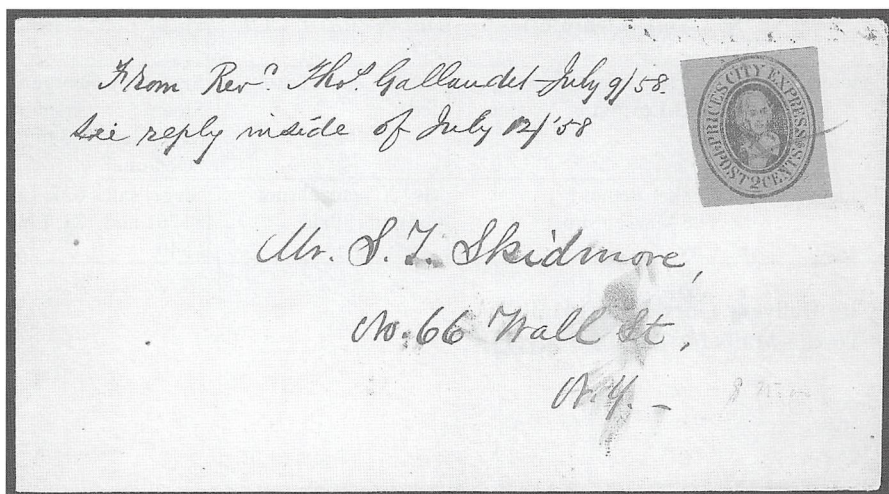 From Revd. Thos. Gallaudet - July 9/58.
See reply inside of July 12/58
PRICE'S CITY EXPRESS
POST 2 CENTS
Mr. S. T. Skidmore,
No. 66 Wall St,
N.Y. -